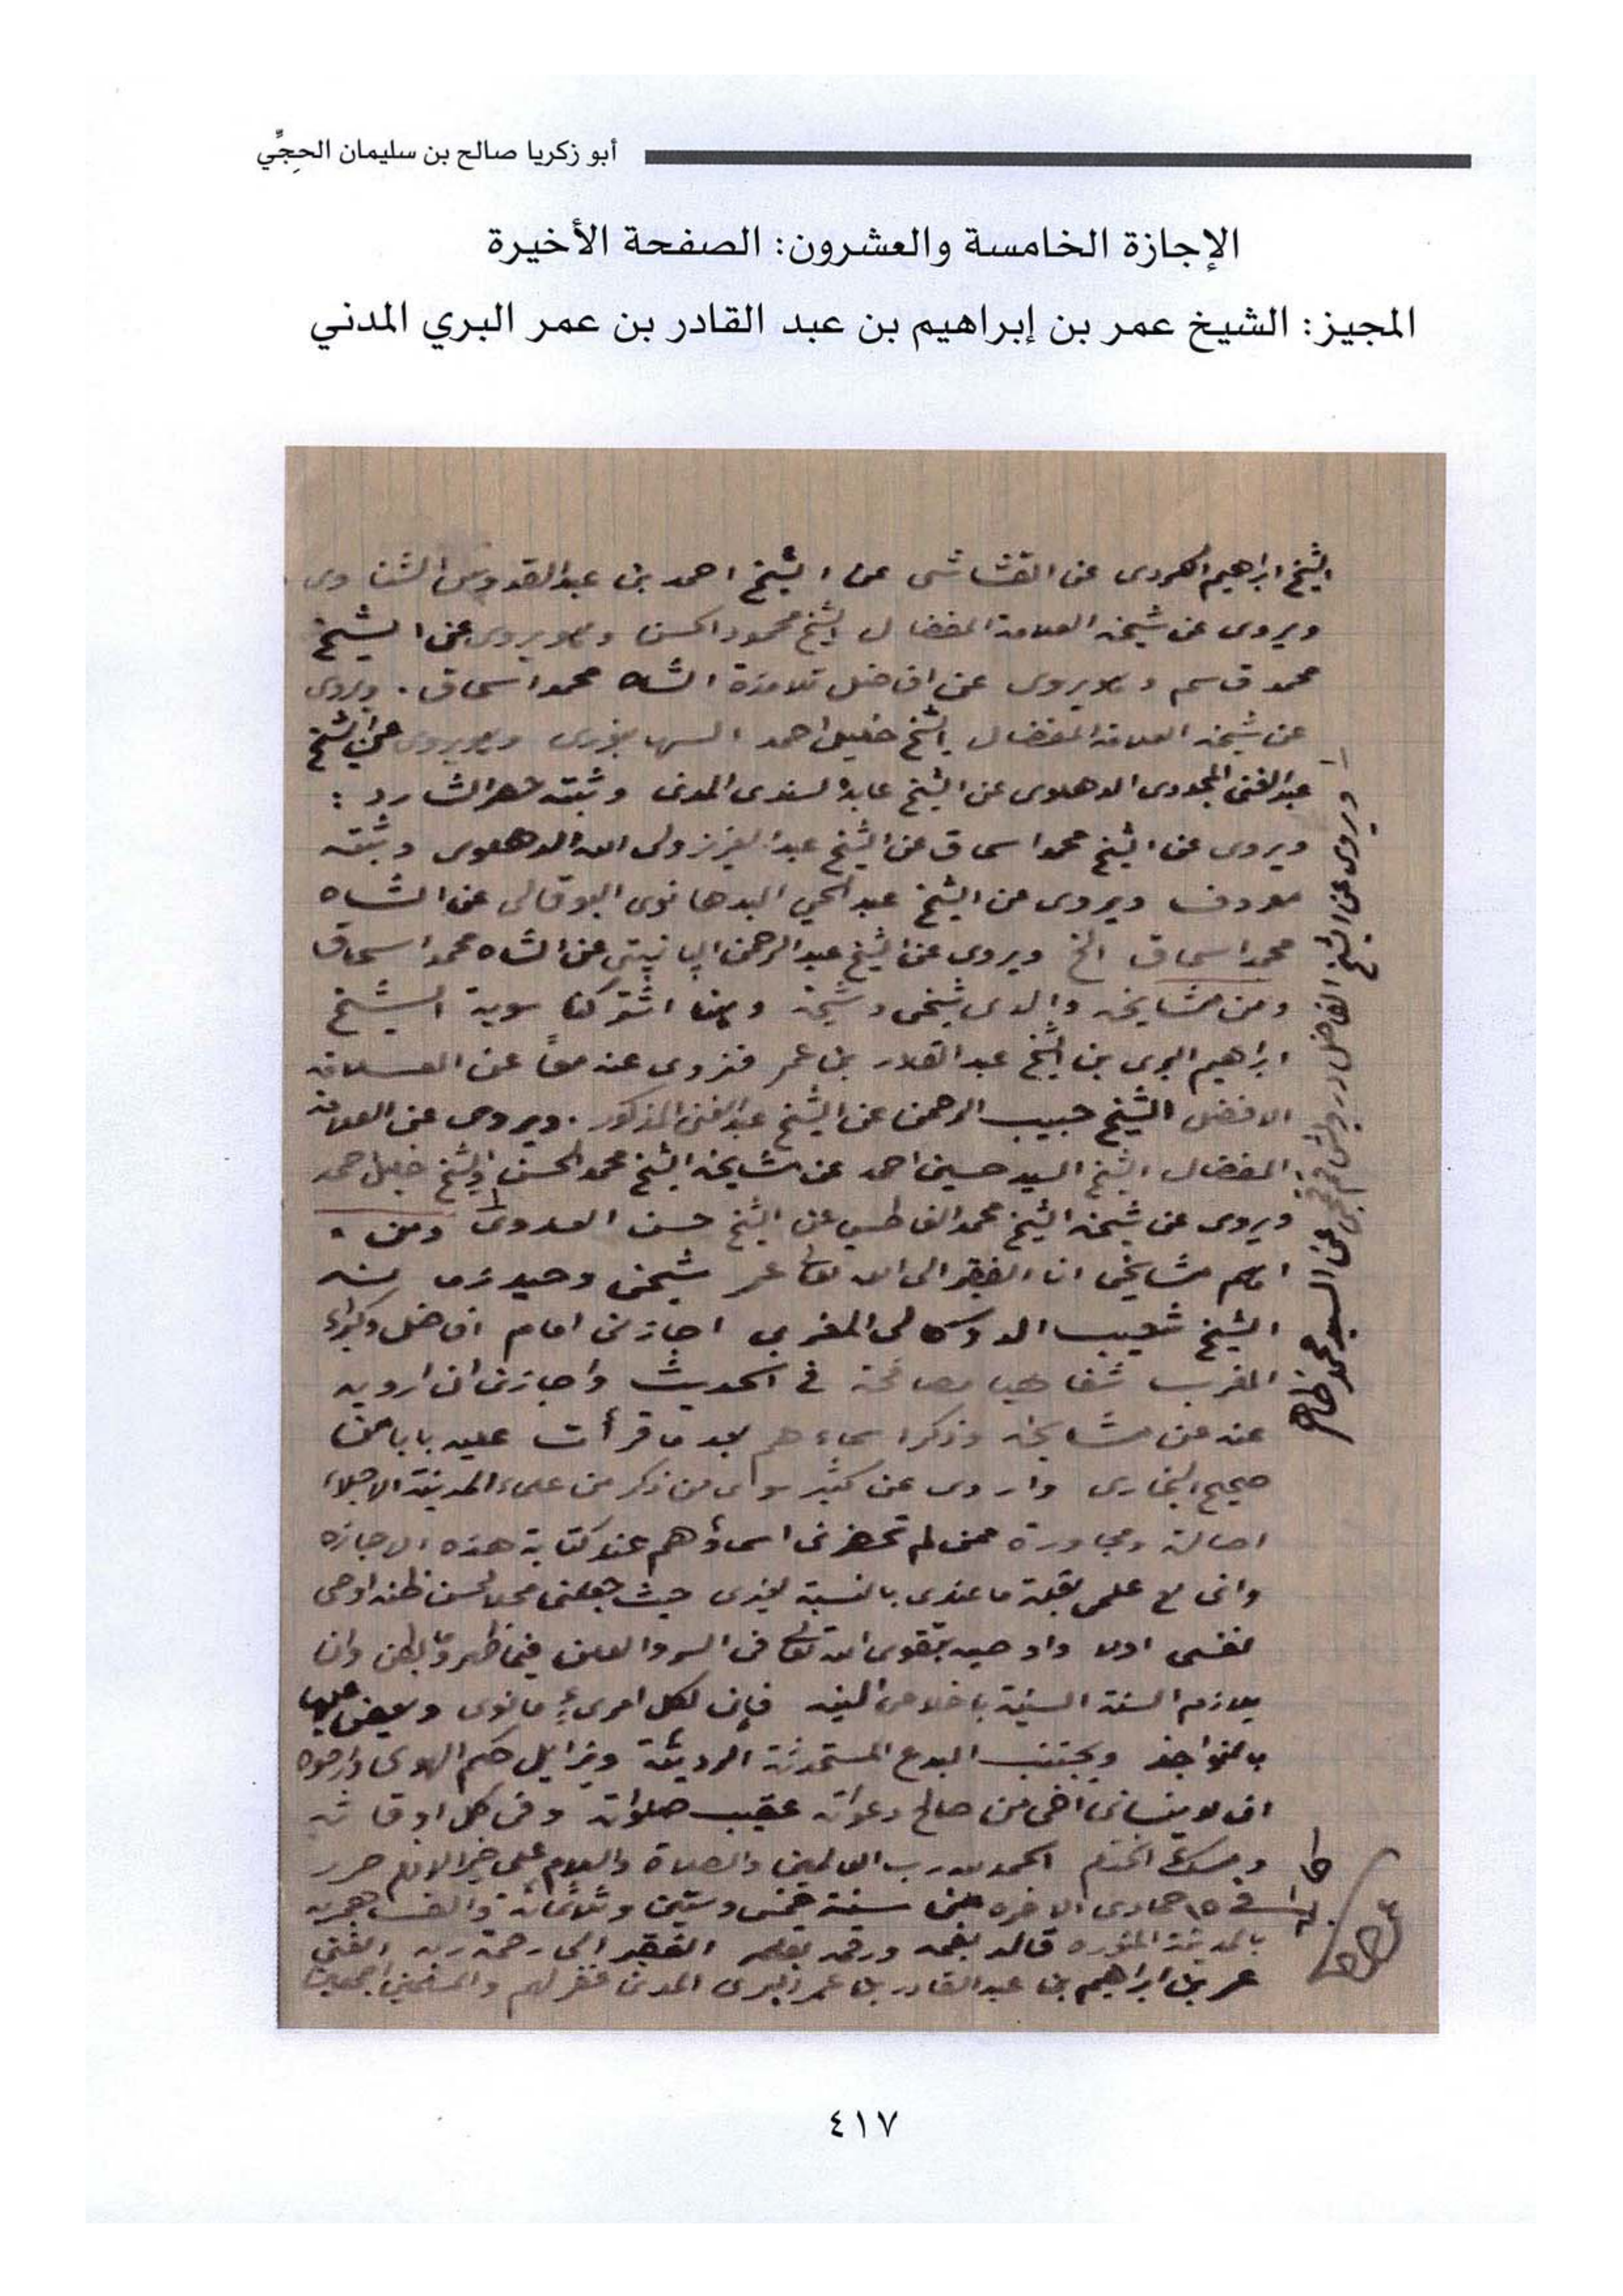 أبو زكريا صالح بن سليمان الحِجِّي
الإجازة الخامسة والعشرون: الصفحة الأخيرة
المجيز: الشيخ عمر بن إبراهيم بن عبد القادر بن عمر البري المدني
الشيخ ابراهيم الكردى عن القشاشى عن الشيخ احمد بن عبد القدوس الشناوى
ويروى عن شيخه العلامة المفضال الشيخ محمود الحسن وهو يروى عن الشيخ
محمد قاسم وهو يروى عن افاضل تلامذة الشاه محمد اسحاق . ويروى
عن شيخه العلامة المفضال الشيخ خليل احمد السهارنفورى وهو يروى عن الشيخ
عبد الغنى المجددى الدهلوى عن الشيخ عابد السندى المدنى وثبته حصر الشارد :
ويروى عن الشيخ محمد اسحاق عن الشيخ عبد العزيز ولى الله الدهلوى وثبته
معروف ويروى عن الشيخ عبد الحي البدهانوى عن الشاه
محمد اسحاق الخ ويروى عن الشيخ عبد الرحمن البانيبتى عن الشاه محمد اسحاق
ومن مشايخه والدى شيخى وشيخه وبهما اشتركنا سوية الشيخ
ابراهيم البرى بن الشيخ عبد القادر بن عمر فنروى عنه معًا عن العلامة
الافضل الشيخ حبيب الرحمن عن الشيخ عبد الغنى المذكور . ويروى عن العلامة
المفضال الشيخ السيد حسين احمد عن مشايخه الشيخ محمد الحسن والشيخ خليل احمد
ويروى عن شيخه الشيخ محمد الفاطسى عن الشيخ حسن العدوى ومن
اهم مشايخى انا الفقير الى الله تعالى عمر شيخى وحيد زمانه
الشيخ شعيب الدوكالى المغربى اجازنى امام افاضل وكبراء
المغرب شفاهيا مصافحة في الحديث واجازنى ان ارويه
عنه عن مشايخه وذكر اسماءهم بعد ما قرأت عليه بابا من
صحيح البخارى واروى عن كثير سوى من ذكر من علماء المدينة الاجلاء
اصالة ومجاورة ممن لم تحضرنى اسماؤهم عند كتابة هذه الاجازه
وانى مع علمى بقلة ما عندى بالنسبة لغيرى حيث جعلنى محلا لحسن ظنه اوصى
نفسى اولا واوصيه بتقوى الله تعالى فى السر والعلن فيما ظهر وما بطن وان
يلازم السنة السنية باخلاص النية فإن لكل امرىء ما نوى ويعض عليها
بالنواجذ ويجتنب البدع المستحدثة الرديئة ويزايل حكم الهوى وارجوه
ان لا ينسانى اخى من صالح دعواته عقيب صلواته وفى كل اوقاته
ومسك الختام الحمد لله رب العالمين والصلاة والسلام على خير الانام حرر
فى ١٥ جمادى الاخره من سنة خمس وستين وثلاثمائة والف هجريه
بالمدينة المنوره قاله بفمه ورقمه بقلمه الفقير الى رحمة ربه الغنى
عمر بن ابراهيم بن عبد القادر بن عمر البرى المدنى غفر لهم والمسلمين اجمعين
ويروى عن الشيخ الفاضل عن السيد محمد ظاهر
٤١٧